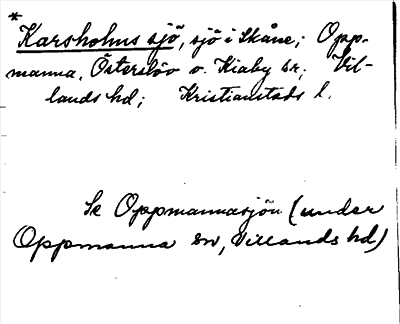 *
Karsholms sjö, sjö i Skåne; Opp-
manna, Österslöv o. Kiaby sr; Vil-
lands hd; Kristianstads l.
Se Oppmannasjön (under
Oppmanna sn, Villands hd)